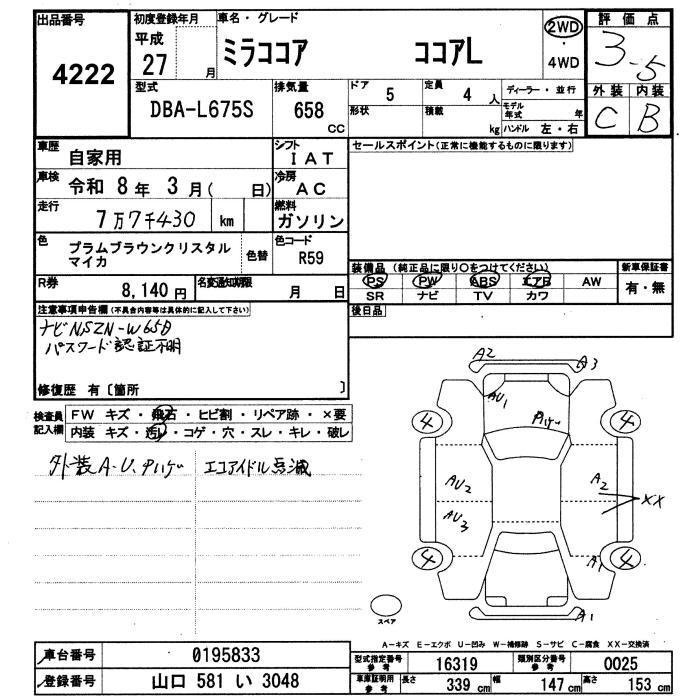 出品番号
4222
初度登録年月
平成
27 月
車名・グレード
ミラココア ココアL
2WD
・
4WD
評価点
3.5
外装 内装
C B
型式
DBA-L675S
排気量
658
CC
ドア
5
定員
4 人
形状
積載
kg
ディーラー・並行
モデル
年式 年
ハンドル 左・右
車歴
自家用
シフト
IAT
車検
令和 8年 3月( 日)
冷房
AC
走行
7万7千430 km
燃料
ガソリン
色
プラムブラウンクリスタル
マイカ
色替
色コード
R59
セールスポイント(正常に機能するものに限ります)
R券
8,140 円
名変通知期限
月 日
装備品(純正品に限り○をつけてください)
PS PW ABS エアB AW
SR ナビ TV カワ
新車保証書
有・無
後日品
注意事項申告欄(不具合内容等は具体的に記入して下さい)
ナビNSZN-W65D
パスワード認証不明
修復歴 有〔箇所 〕
検査員
記入欄
FW キズ・飛石・ヒビ割・リペア跡・×要
内装 キズ・汚レ・コゲ・穴・スレ・キレ・破レ
外装A-U、
エコアイドル点滅
A2
A3
AU1
4
4
AU2
A2
XX
AU3
4
4
A1
A1
スペア
A-キズ E-エクボ U-凹み W-補修跡 S-サビ C-腐食 XX-交換済
車台番号
0195833
登録番号
山口 581 い 3048
型式指定番号
参考
16319
類別区分番号
参考
0025
車庫証明用
参考
長さ
339 cm
幅
147 cm
高さ
153 cm